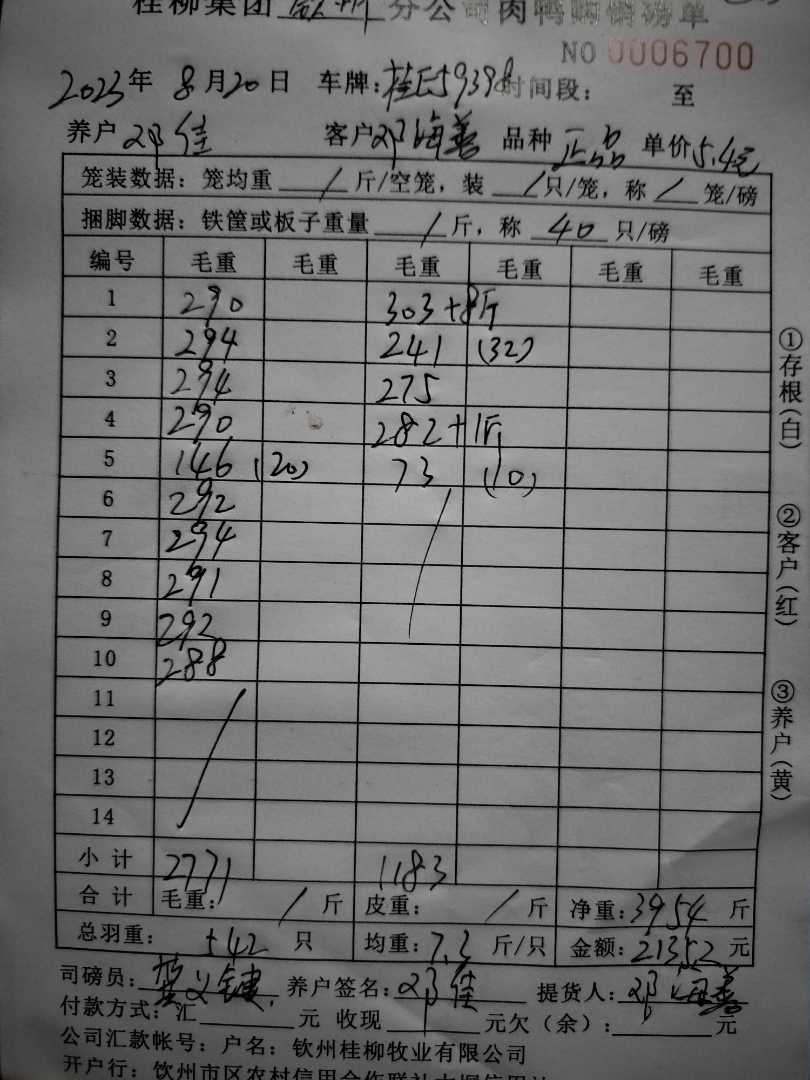 桂柳集团 钦州 分公司肉鸭购销磅单
NO 0006700
2023年 8月20日 车牌:桂E59398 时间段: 至
养户 邓佳 客户 邓海善 品种 正品 单价5.4元
笼装数据: 笼均重 / 斤/空笼, 装 / 只/笼, 称 / 笼/磅
捆脚数据: 铁筐或板子重量 / 斤, 称 40 只/磅
编号 毛重 毛重 毛重 毛重 毛重 毛重
1 290 303+8斤
2 294 241 (32)
3 294 275
4 290 282+1斤
5 146 (20) 73 (10)
6 292
7 294
8 291
9 292
10 288
11
12
13
14
小计 2771 1183
合计 毛重: / 斤 皮重: / 斤 净重:3954 斤
总羽重: 542 只 均重: 7.3 斤/只 金额: 21352 元
司磅员: 养户签名: 邓佳 提货人: 邓海善
付款方式: 汇 元 收现 元欠(余): 元
公司汇款帐号: 户名: 钦州桂柳牧业有限公司
开户行: 钦州市区农村信用合作联社大埇信用社
①存根(白)
②客户(红)
③养户(黄)